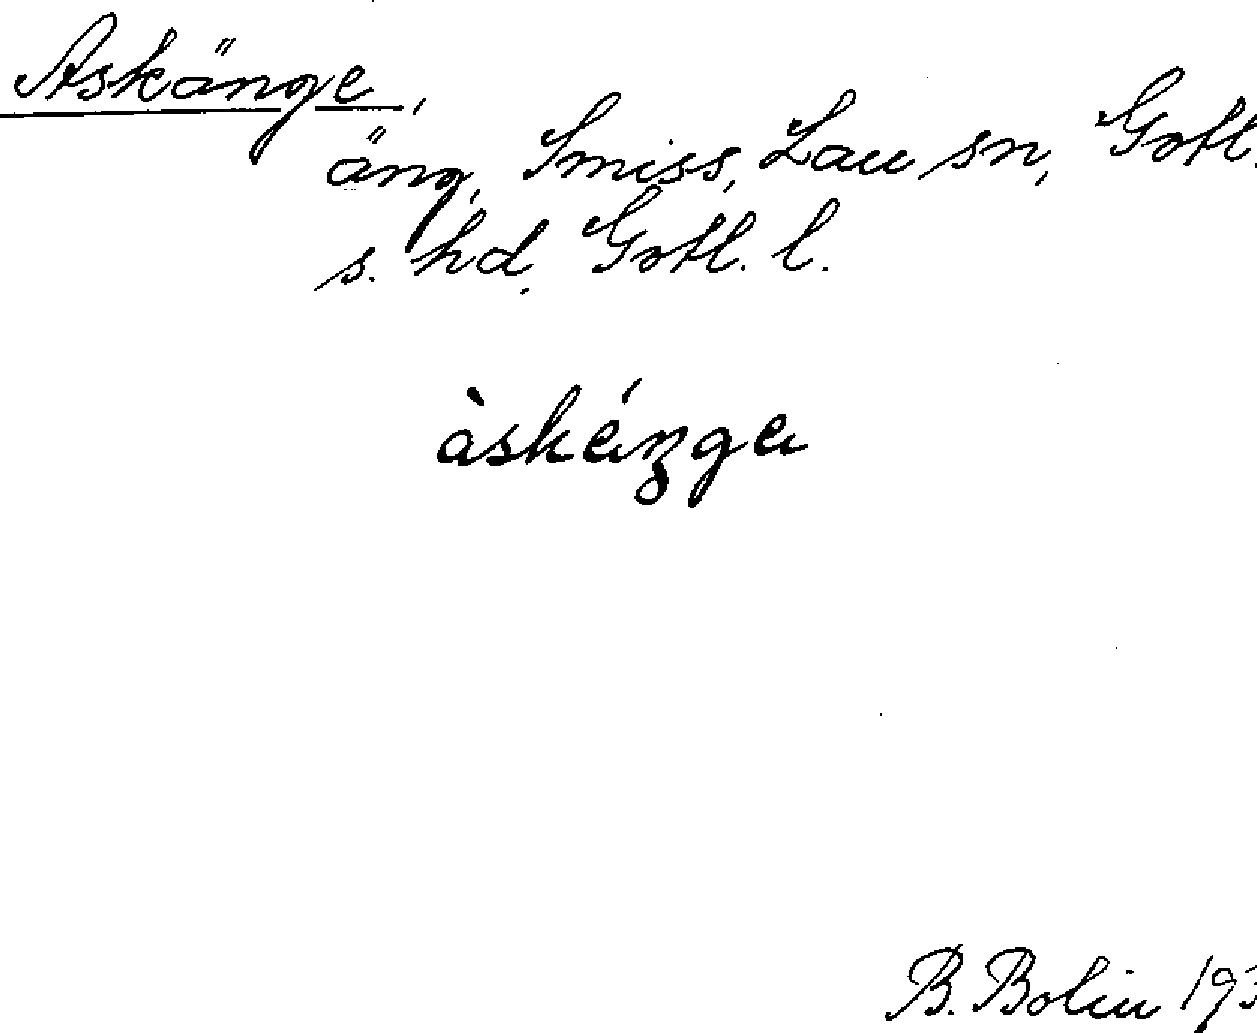 Askänge,
äng, Smiss, Lau sn, Gotl.
s. hd, Gotl. l.
àskéŋga
B. Bolin 193